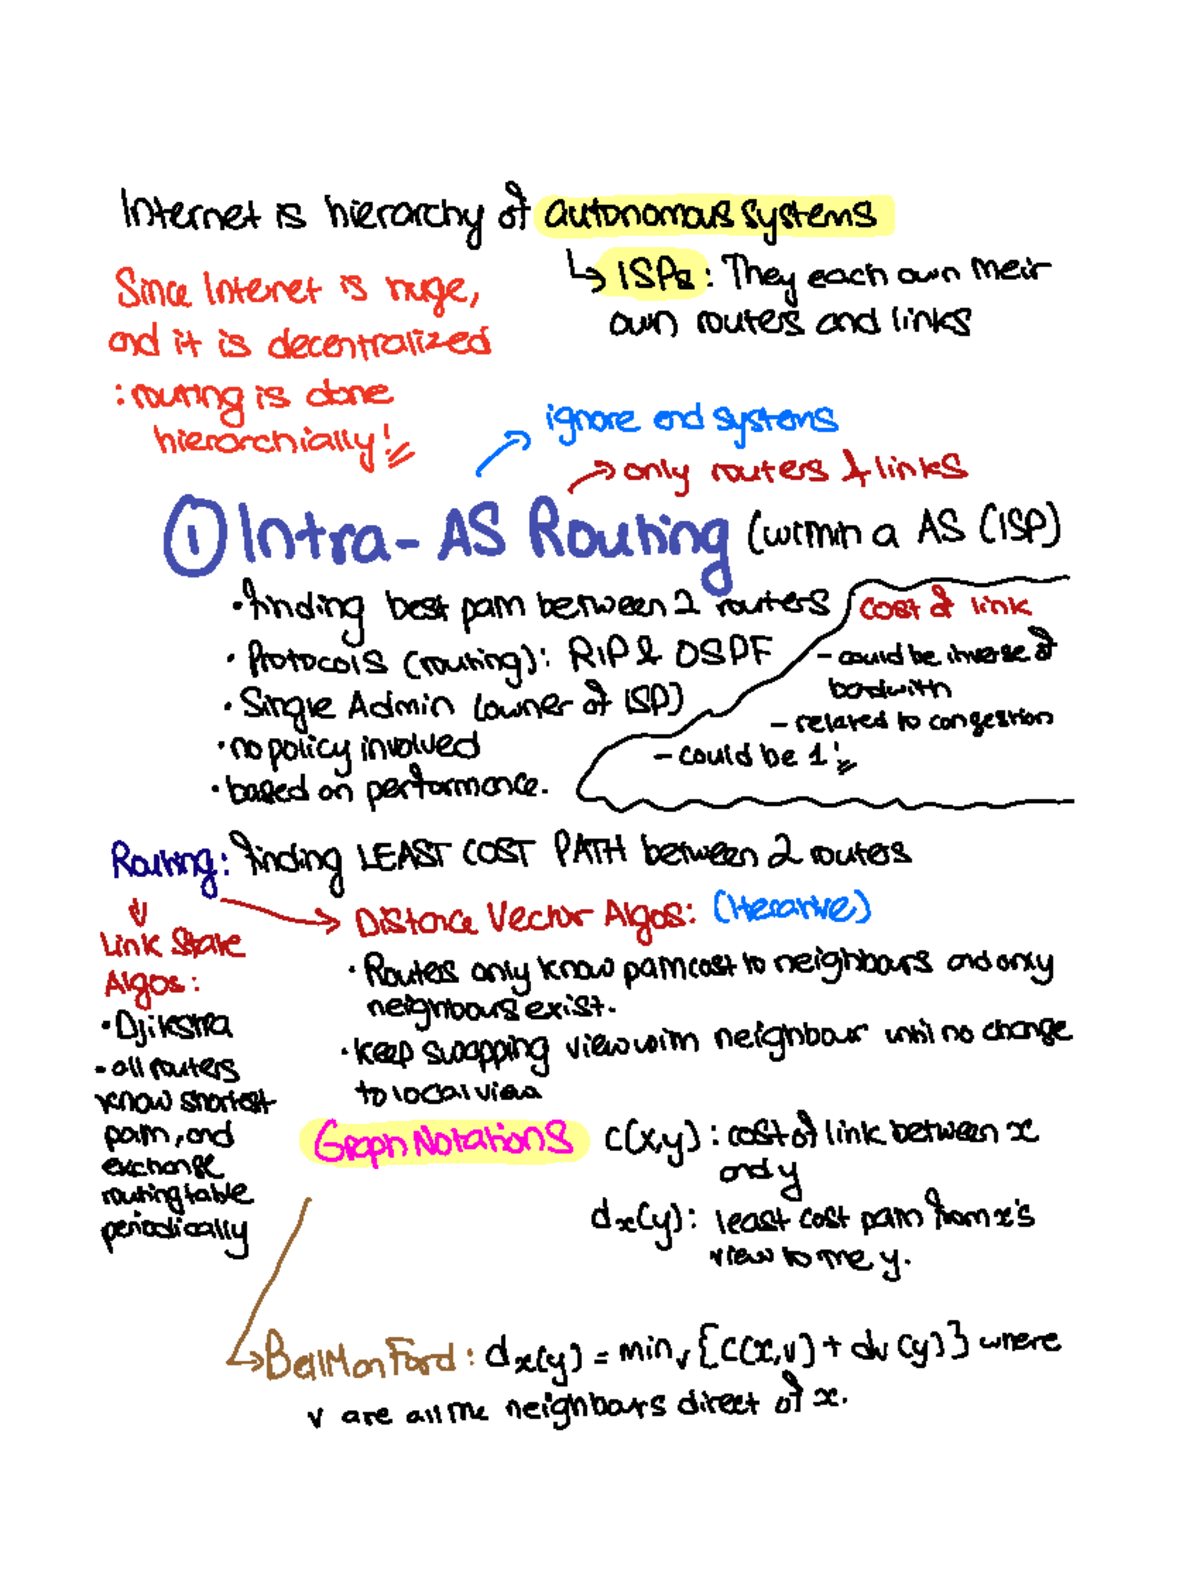 Internet is hierarchy of autonomous systems
↳ ISPs: They each own their
own routers and links
Since Internet is huge,
and it is decentralized
: routing is done
hierarchially!
→ ignore end systems
→ only routers & links
① Intra-AS Routing (within a AS (ISP)
• finding best path between 2 routers
• Protocols (routing): RIP & OSPF
• Single Admin (owner of ISP)
• no policy involved
• based on performance.
cost of link
- could be inverse of
badwith
- related to congestion
- could be 1!
Routing: finding LEAST COST PATH between 2 routers
Link State
Algos:
• Djikstra
- all routers
know shortest
path, and
exchange
routing table
periodically
→ Distance Vector Algos: (Iterative)
• Routes only know path cost to neighbours and only
neighbours exist.
• keep swapping view with neighbour until no change
to local view
Graph Notations
c(x,y): cost of link between x
and y
dx(y): least cost path from x's
view to the y.
→ BellManFord: dx(y) = minv {C(x,v) + dv(y)} where
v are all the neighbours direct of x.